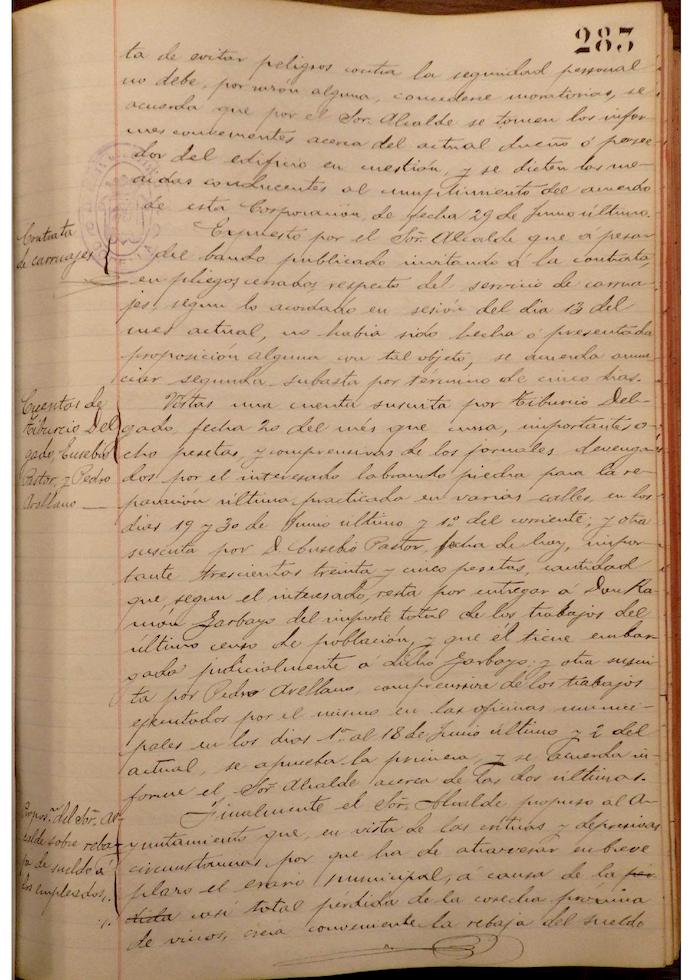 283
ta de evitar peligros contra la seguridad personal
no debe, por razón alguna, concederse moratorias, se
acuerda que por el Sor. Alcalde se tomen los infor-
mes convenientes acerca del actual dueño ó posee-
dor del edificio en cuestión, y se dicten las me-
didas conducentes al cumplimiento del acuerdo
de esta Corporación, de fecha 29 de Junio último.
Contrata
de carruajes
Expuesto por el Sor. Alcalde que á pesar
del bando publicado invitando á la contrata,
en pliegos cerrados respecto del servicio de carrua-
jes, segun lo acordado en sesión del dia 13 del
mes actual, no habia sido hecha ó presentada
proposición alguna con tal objeto, se acuerda anun-
ciar segunda subasta por término de cinco dias.
Cuentas de
Tiburcio Del
gado, Eusebio
Pastor, y Pedro
Arellano
Vistas una cuenta suscrita por Tiburcio Del-
gado, fecha 20 del mes que cursa, importante o-
cho pesetas, y comprensiva de los jornales devenga-
dos por el interesado labrando piedra para la re-
paración última practicada en varias calles, en los
dias 19 y 30 de Junio último y 1º del corriente; y otra
suscrita por D. Eusebio Pastor, fecha de hoy, impor-
tante trescientas treinta y cinco pesetas, cantidad
que, segun el interesado, resta por entregar a Don Ra-
món Garbayo del importe total de los trabajos del
último censo de población, y que él tiene embar-
gada judicialmente a dicho Garbayo; y otra suscri-
ta por Pedro Arellano, comprensiva de los trabajos
ejecutados por el mismo en las oficinas munici-
pales en los dias 1º al 18 de Junio último y 2 del
actual, se aprueba la primera, y se acuerda in-
forme el Sor. Alcalde acerca de las dos últimas.
del Sor. Al-
calde sobre reba-
ja de sueldo á
los empleados.
Finalmente el Sor. Alcalde propuso al A-
yuntamiento que, en vista de las críticas y depresivas
circunstancias por que ha de atravesar en breve
plazo el erario municipal, á causa de la pér-
dida casi total pérdida de la cosecha próxima
de vinos, crea conveniente la rebaja del sueldo